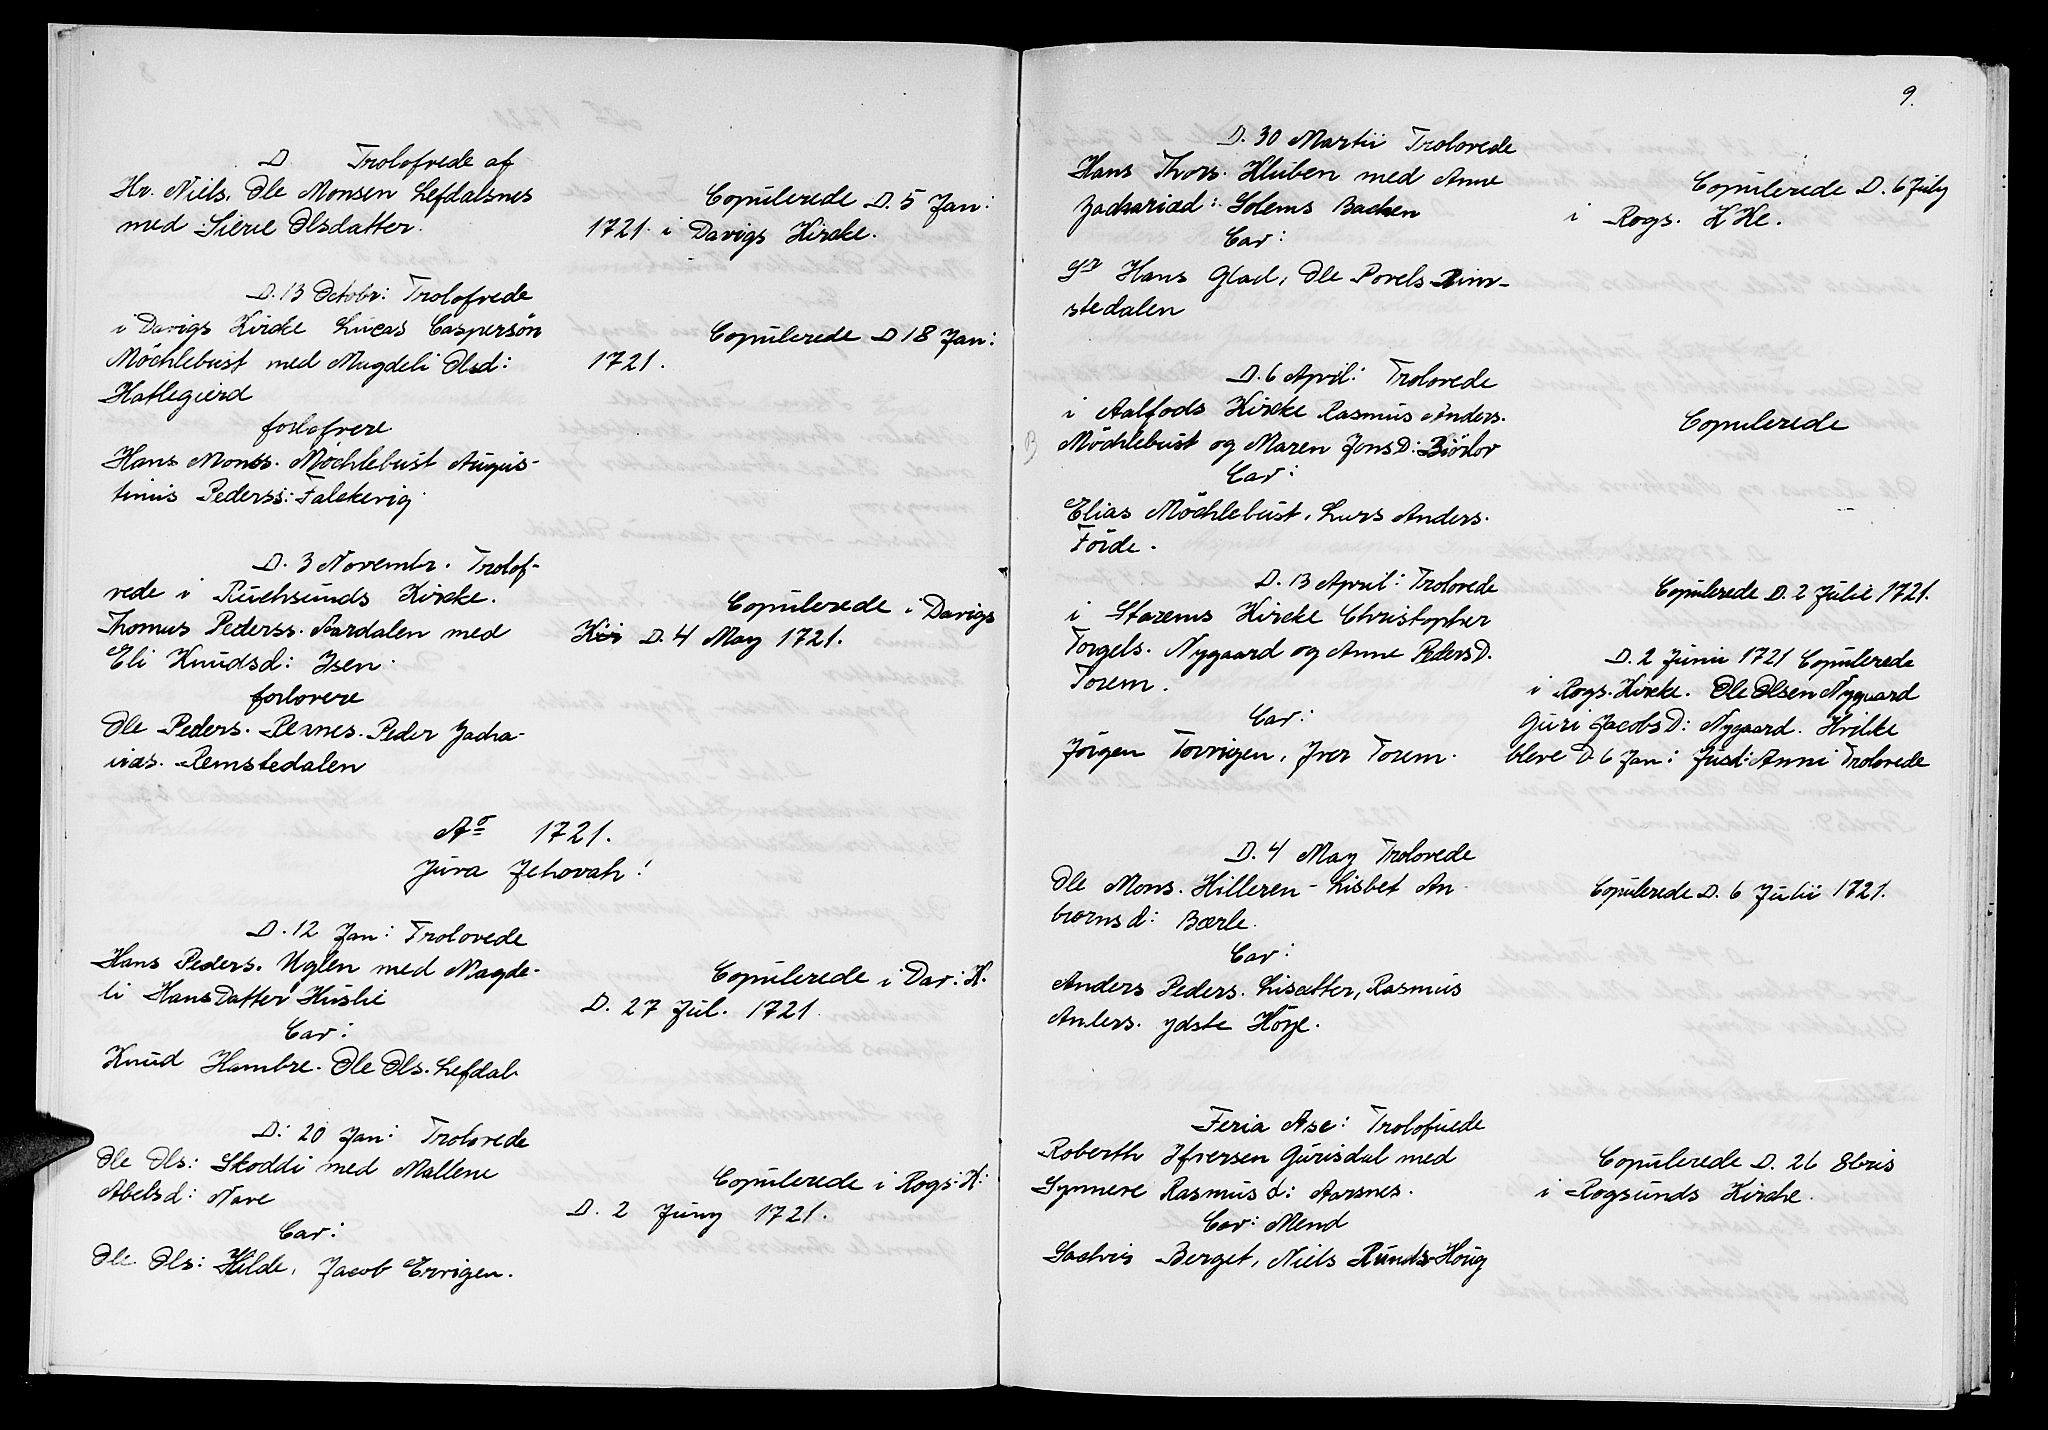 D Trolofrede af
Hr. Niels, Ole Monsen Lefdalsnes
med Sierie Olsdatter.
Copulerede D. 5 Jan:
1721. i Davigs Kircke.
D. 13 Octobr: Trolofrede
i Davigs Kircke Lucas Caspersön
Möchlebust med Magdeli Olsd:
Hatlegierd
forlofvere
Hans Monss. Möchlebust Augus-
tinus Pederss: Falckevig.
Copulerede D 18 Jan:
1721.
D. 3 Novembr. Trolof-
rede i Ruchsunds Kircke.
Thomus Pederss. Aardalen med
Eli Knudsd: Isen.
forlovere
Ole Peders. Pernes. Peder Zacha-
rias. Remstedalen
Copulerede i Davigs
Kir D. 4 May 1721.
Aº 1721.
Juva Jehovah!
D. 12 Jan: Trolovede
Hans Peders. Uglen med Magde-
li HansDatter Huslie
Cav:
Knud Hambre. Ole Ols. Lefdal.
Copulerede i Dav: K.
D. 27 Jul. 1721.
D: 20 Jan: Trolovede
Ole Ols: Skoddi med Mallene
Abelsd: Nave
Cav:
Ole Ols: Hilde, Jacob Ervigen.
Copulerede i Rogs: K:
D. 2 Juny 1721.
9.
D. 30 Martii Trolovede
Hans Thors. Hluben med Anne
Zachariæd: Solems Backen
Cav:
Sr Hans Glad, Ole Povels Rim-
stedalen
Copulerede D. 6 July
i Rogs. K Ke.
D. 6 April: Trolovede
i Aalfods Kircke Rasmus Anders.
Möchlebust og Maren JonsD: Biörlov
Cav:
Elias Möchlebust, Lars Anders.
Förde.
Copulerede
D. 13 April: Trolovede
i Starems Kircke Christopher
Torgels. Nygaard og Anne PedersD.
Torem.
Cav:
Jörgen Torvigen, Iver Torem.
Copulerede D. 2 Julii 1721.
D. 2 Junii 1721 Copulerede
i Rogs. Kircke. Ole Olsen Nygaard
Guri JacobsD: Nygaard. Hvilke
bleve D. 6 Jan: Jusd: Anni Trolovede
D. 4 May Trolovede
Ole Mons. Hilleren - Lisbet An
biornsd: Bærle.
Cav:
Anders Peders. Lisætter, Rasmus
Anders. ydste Höye.
Copulerede D. 6 Julii 1721.
Feria Asc: Trolofuede
Roberth Ifversen Gurisdal med
Synneve Rasmus d: Aarsnes.
Cav: Mend
Sachris Berget, Niels Runds-Houg
Copulerede D. 26 8bris
i Rogsunds Kirche.